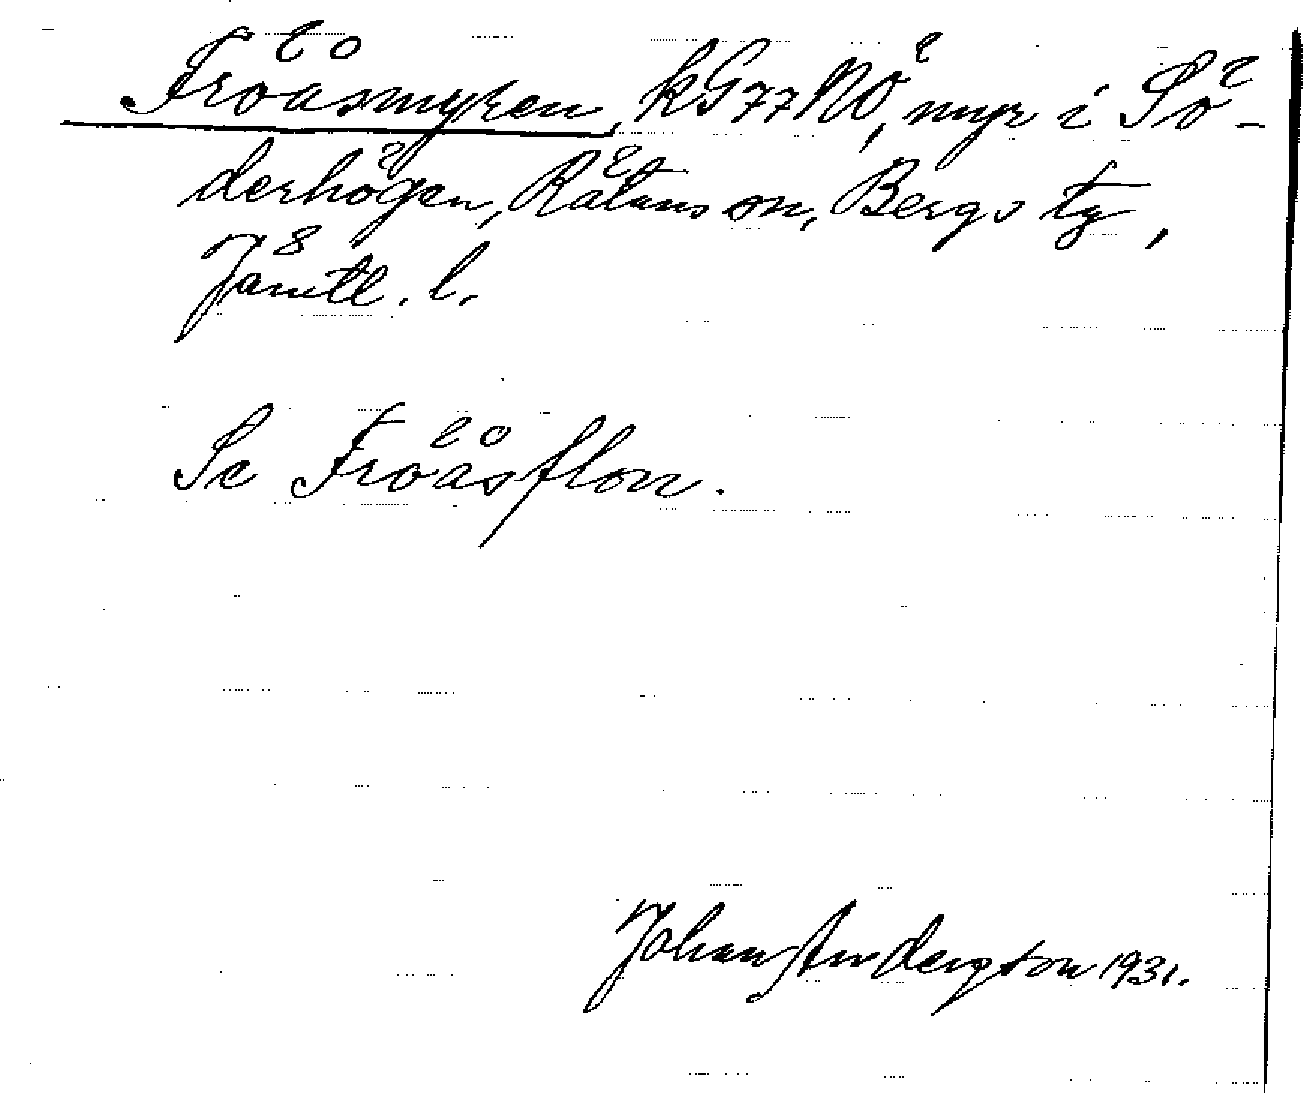 Fröåsmyren, kG77NÖ, myr i Sö-
derhögen, Rätans sn, Bergs tg,
Jämtl. l.
Se Fröåsflon.
Johan Anderzson 1931.